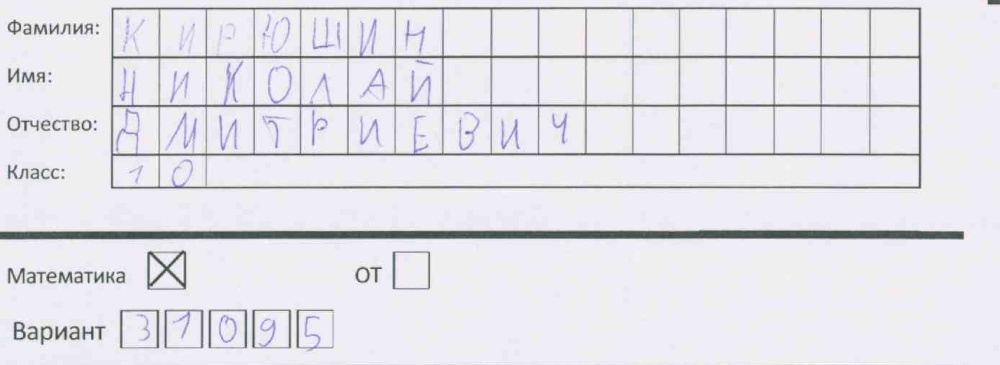 Фамилия: КИРЮШИН
Имя: НИКОЛАЙ
Отчество: ДМИТРИЕВИЧ
Класс: 10
Математика ☒ ОТ ☐
Вариант 31095